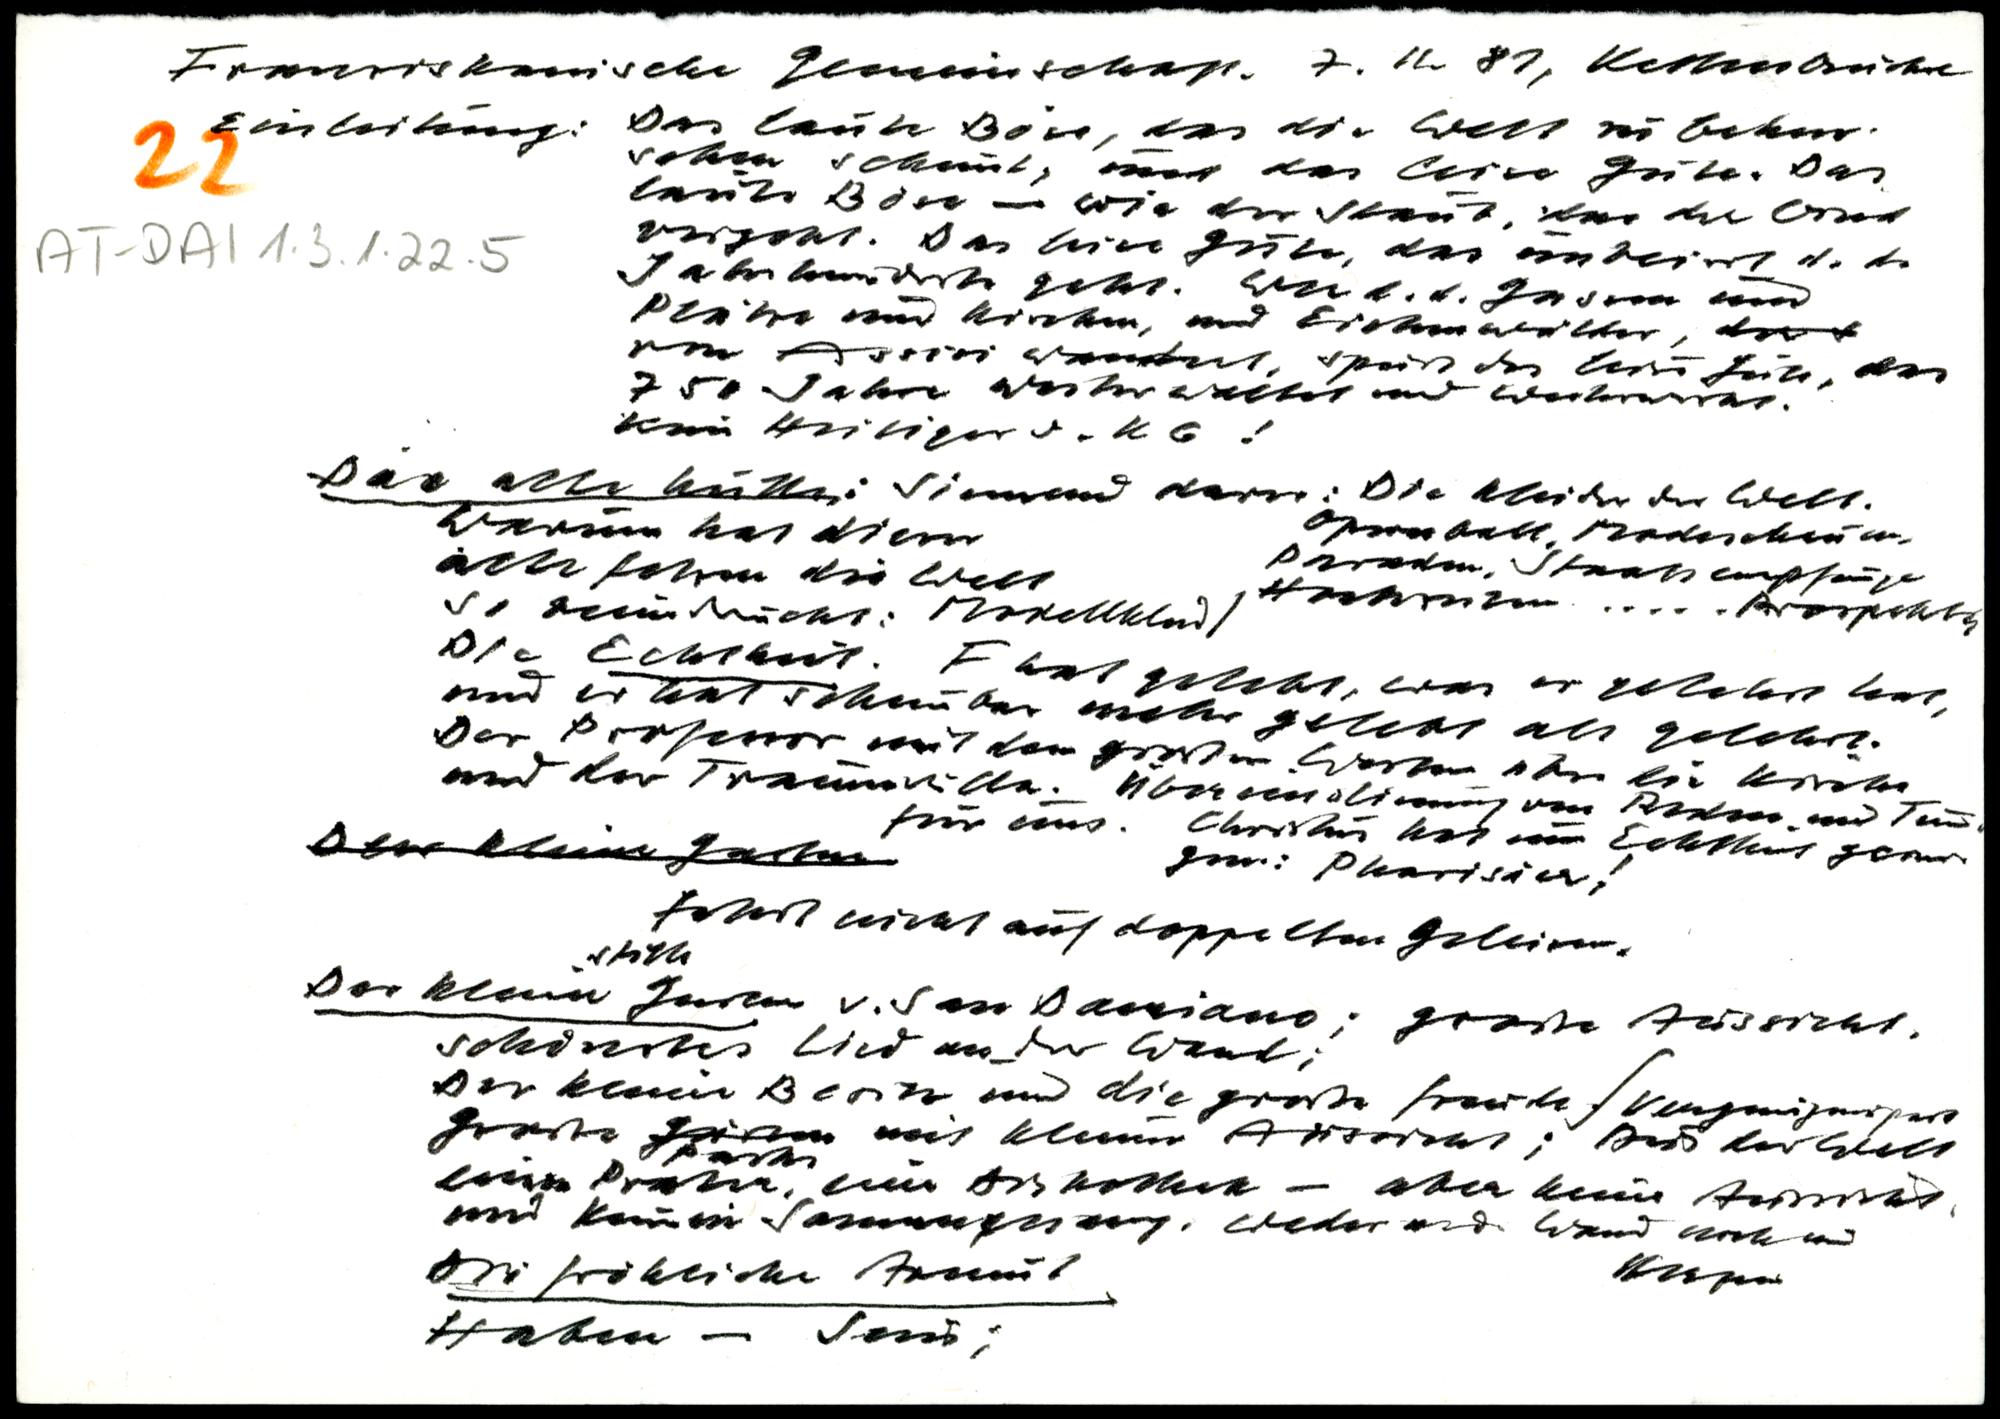 Franziskanische Gemeinschaft. 7. 11. 81, Kettenbrücke
22
Einleitung: Das laute Böse, das die Welt zu beherr-
schen scheint, und das leise Gute. Das
laute Böse — wie der Staub, den der Wind
verjagt. Das leise Gute, das unbeirrt d. d.
AT-DAI 1.3.1.22.5
Jahrhunderte geht. Wer d. d. Gassen und
Plätze und Kirchen, und Eichenwälder,
von Assisi wandert, spürt das leise Gute, das
750 Jahre weiterwaltet und weiterwirkt.
Kein Heiliger d. KG!
Die alte Kutte: Sinnend davor: Die Kleider der Welt.
Warum hat dieser
Opernball, Modeschauen,
alte Fetzen die Welt
Paraden, Staatsempfänge
so beeindruckt: Modellkleid/
Hochzeiten ..... Prospekte
Die Echtheit. F hat gelebt, was er gelehrt hat,
und er hat scheinbar mehr gelebt als gelehrt.
Der Professor mit den großen Worten über die Kirche
und der Traumvilla. Übereinstimmung von Reden und Tun
für uns. Christus hat um Echtheit gerun-
Der kleine Garten
gen: Pharisäer!
Fahrt nicht auf doppelten Geleisen.
stille
Der kleine Garten v. San Damiano; große Aussicht.
schönstes Lied an der Wand;
Der kleine Besitz und die große Freude /
Große Gärten mit kleiner Aussicht; Aus der Welt
Parks
einen Prater, eine Diskothek — aber keine Aussicht,
und keinen Sonnengesang. Weder a. d. Wand noch im
Herzen
Die fröhliche Armut
Haben — Sein;